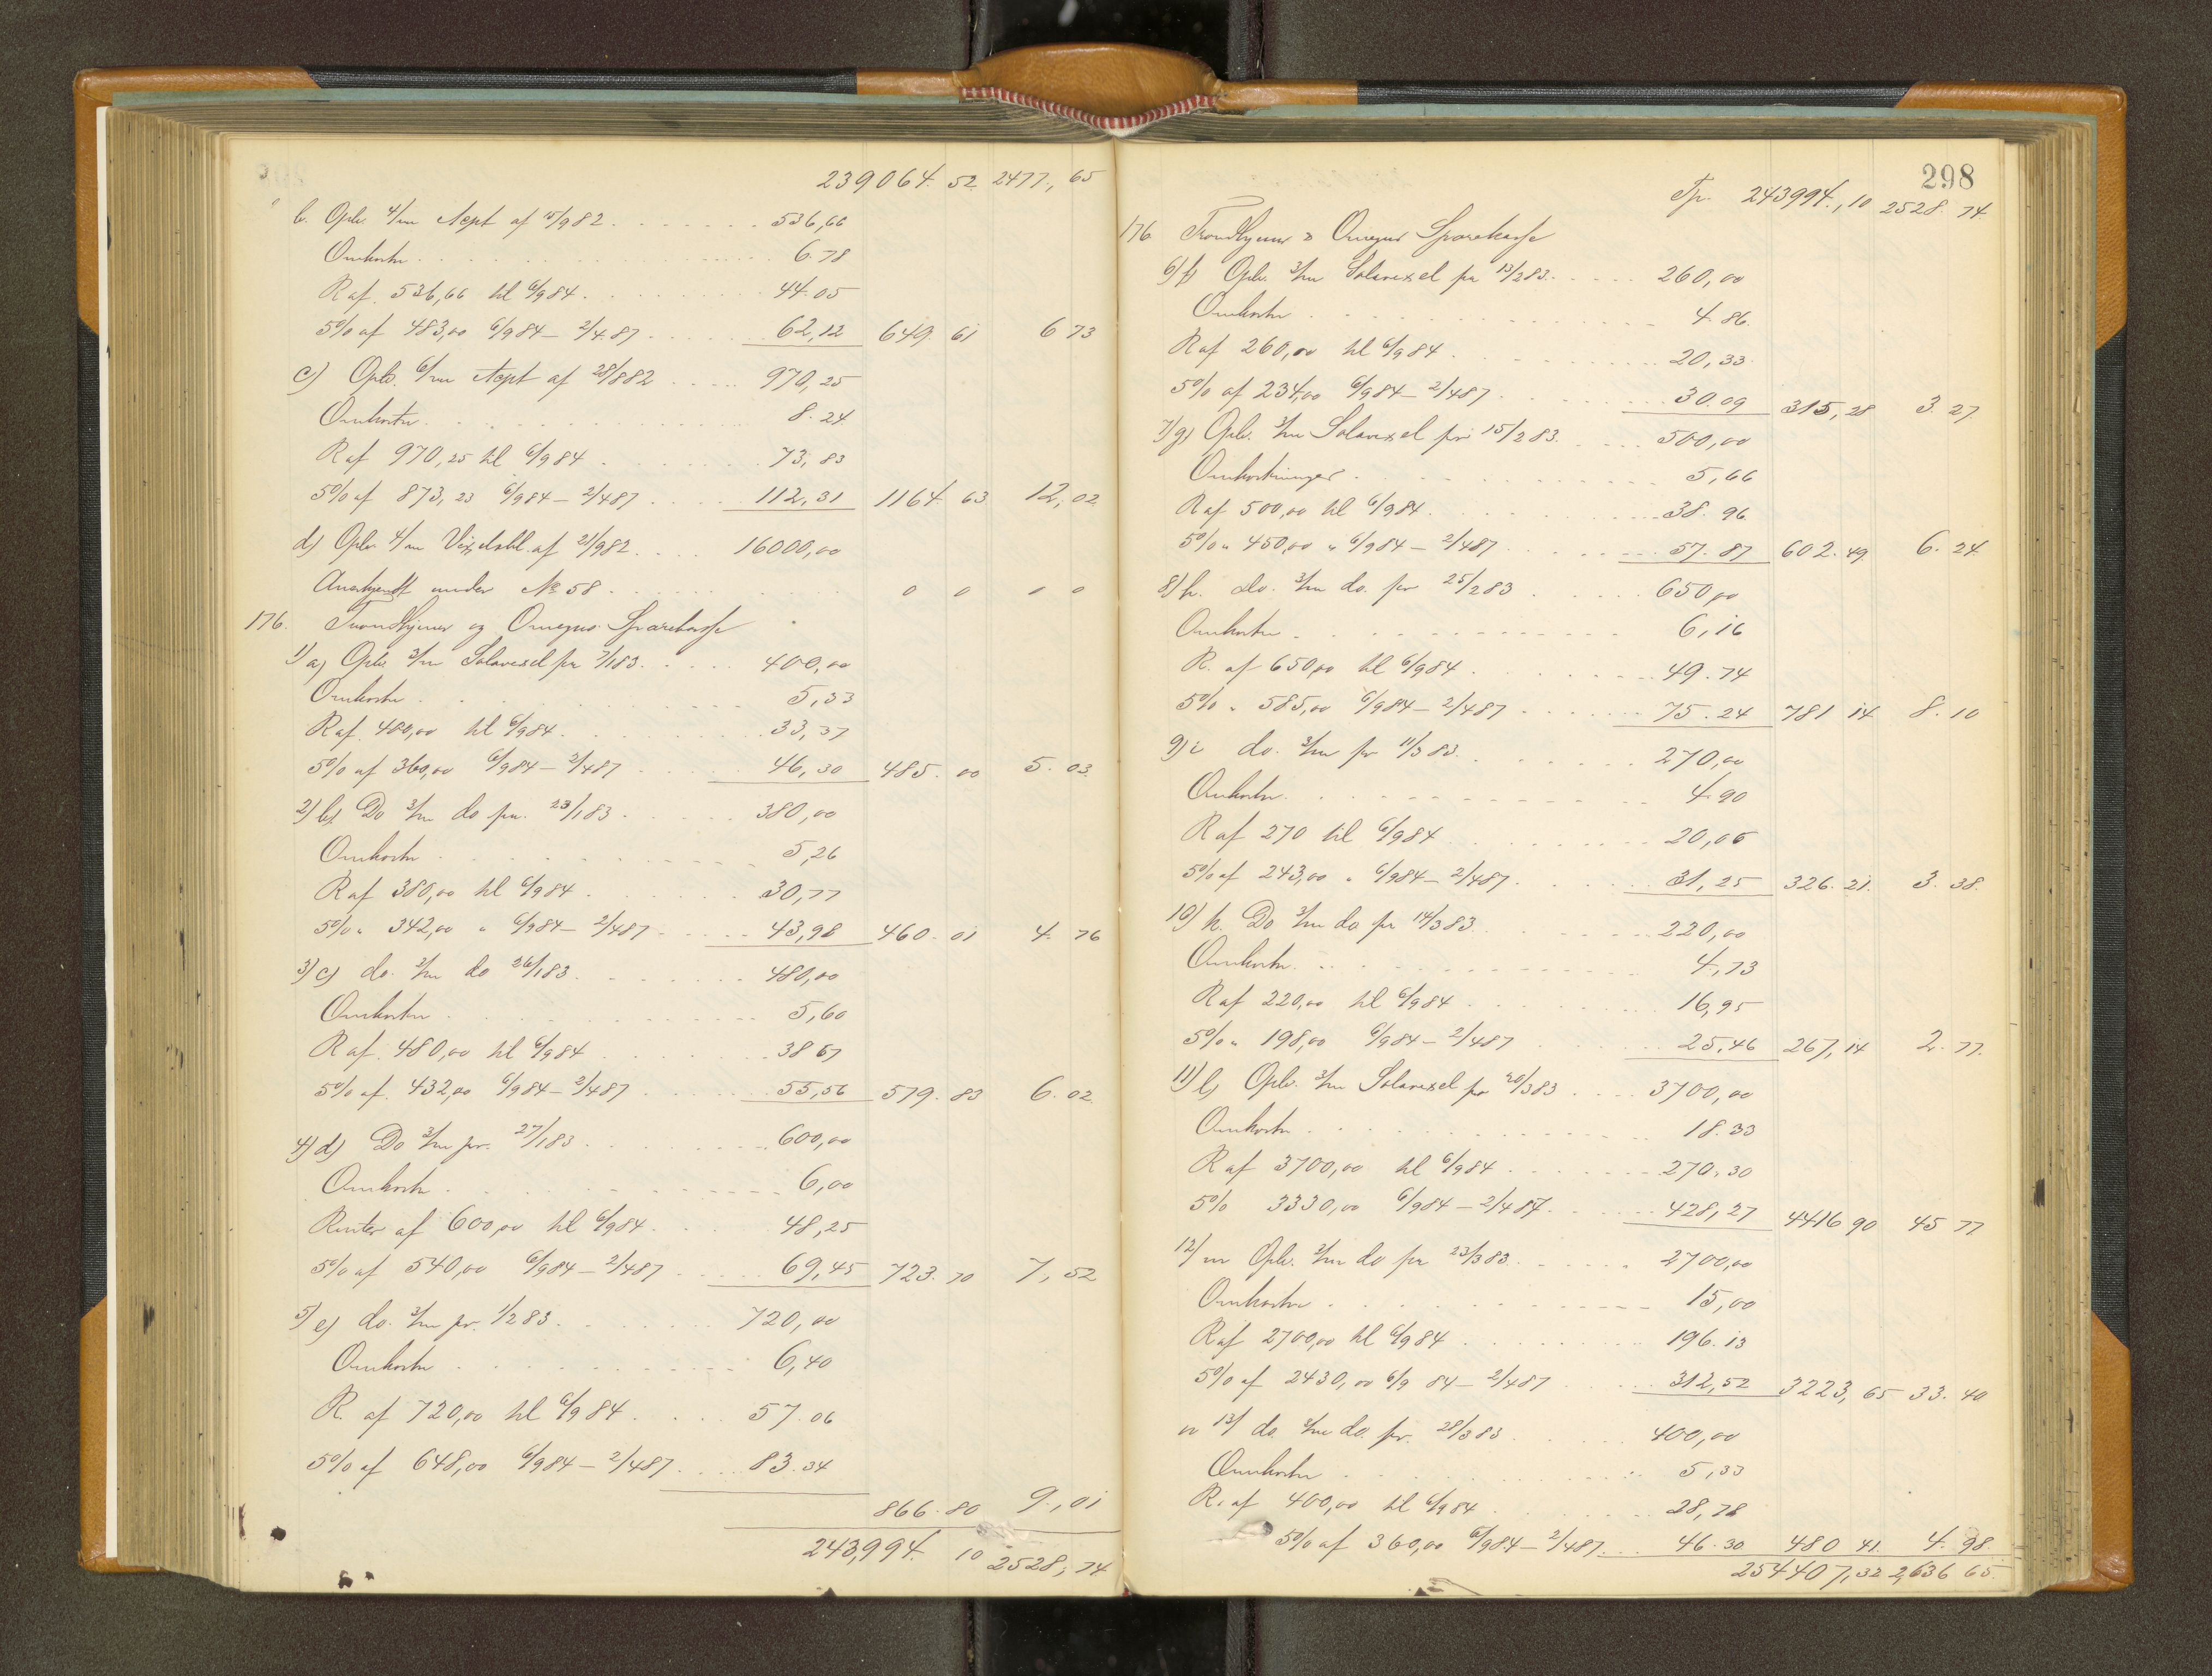 239064. 52 2477, 65
b. Opl. 4/m Acpt af 15/9 82 536,66
Omkostn. 6.78
R af. 536,66 til 6/9 84. 44.05
5% af 483,00 6/9 84 – 2/4 87 62,12 649. 61 6 73
c) Opl. 6/m Acpt af 28/8 82 970,25
Omkostn. 8.24
R af 970,25 til 6/9 84 73,83
5% af 873,23 6/9 84 – 2/4 87 112,31 1164. 63 12,02
d) Opl. 4/m Vexelobl. af 21/9 82 16000,00
Anerkjendt under No 58 0 0 0 0
176. Trondhjems og Omegns Sparekasse
1) a) Opl. 3/m Solavexel pr 7/1 83. 400,00
Omkostn. 5,33
R af. 400,00 til 6/9 84. 33,37
5% af 360,00 6/9 84 – 2/4 87 46,30 485. 00 5. 03.
2) b) Do 3/m do pr. 23/1 83. 380,00
Omkostn 5,26
R af 380,00 til 6/9 84. 30,77
5% " 342,00 " 6/9 84 – 2/4 87 43,98 460. 01 4. 76
3) c) do. 3/m do 26/1 83. 480,00
Omkostn 5,60
R af. 480,00 til 6/9 84 38 67
5% af. 432,00 6/9 84 – 2/4 87 55,56 579. 83 6. 02.
4) d) Do 3/m pr. 27/1 83. 600,00
Omkostn. 6,00
Renter af 600,00 til 6/9 84. 48,25
5% af 540,00 6/9 84 – 2/4 87 69,45 723. 70 7, 52
5) e) do. 3/m pr. 1/2 83. 720,00
Omkostn 6,40
R. af 720,00 til 6/9 84. 57.06
5% af 648,00 6/9 84 – 2/4 87. 83.34
866. 80 9., 01
243,994. 10 2528, 74
298
Tp. 243994., 10 2528. 74
176 Trondhjems & Omegns Sparekasse
6) f) Opl. 3/m Solavexel pr 13/2 83. 260,00
Omkostn 4.86.
R af 260,00 til 6/9 84. 20,33.
5% af 234,00 6/9 84 – 2/4 87. 30.09 315, 28 3. 27.
7) g) Opl. 3/m Solavexel pr 15/2 83. 500,00
Omkostninger. 5,66
R af 500,00 til 6/9 84. 38.96.
5% " 450,00 " 6/9 84 – 2/4 87 57.87 602. 49. 6. 24.
8) h. do. 3/m do. pr 25/2 83 650,00
Omkostn. 6,16
R. af 650,00 til 6/9 84. 49.74
5% " 585,00 6/9 84 – 2/4 87 75.24 781 14 8. 10
9) i do. 3/m pr 11/3 83. 270,00
Omkostn. 4.90
R af 270 til 6/9 84 20,06
5% af 243,00 " 6/9 84 – 2/4 87. 31,25 326. 21. 3. 38.
10) k. Do 3/m do pr 14/3 83 220,00
Omkostn. 4,73
R af 220,00 til 6/9 84 16,95
5% " 198,00 6/9 84 – 2/4 87 25,46 267, 14 2. 77.
11) l) Opl. 3/m Solavexel pr 20/3 83 3700,00
Omkostn 18.33
R af 3700,00 til 6/9 84 270.30
5% 3330,00 6/9 84 – 2/4 87. 428,27 4416 90 45 77.
12) m Opl. 3/m do pr 23/3 83. 2700,00
Omkostn 15,00
R af 2700,00 til 6/9 84 196.13
5% af 2430,00 6/9 84 – 2/4 87 312,52 3223, 65 33. 40
n 13) do. 3/m do. pr. 28/3 83 400,00
Omkostn 5,33
R. af 400,00 til 6/9 84 28,78
5% af 360,00 6/9 84 – 2/4 87. 46.30 480 41. 4. 98.
254407, 32 2,636 65.